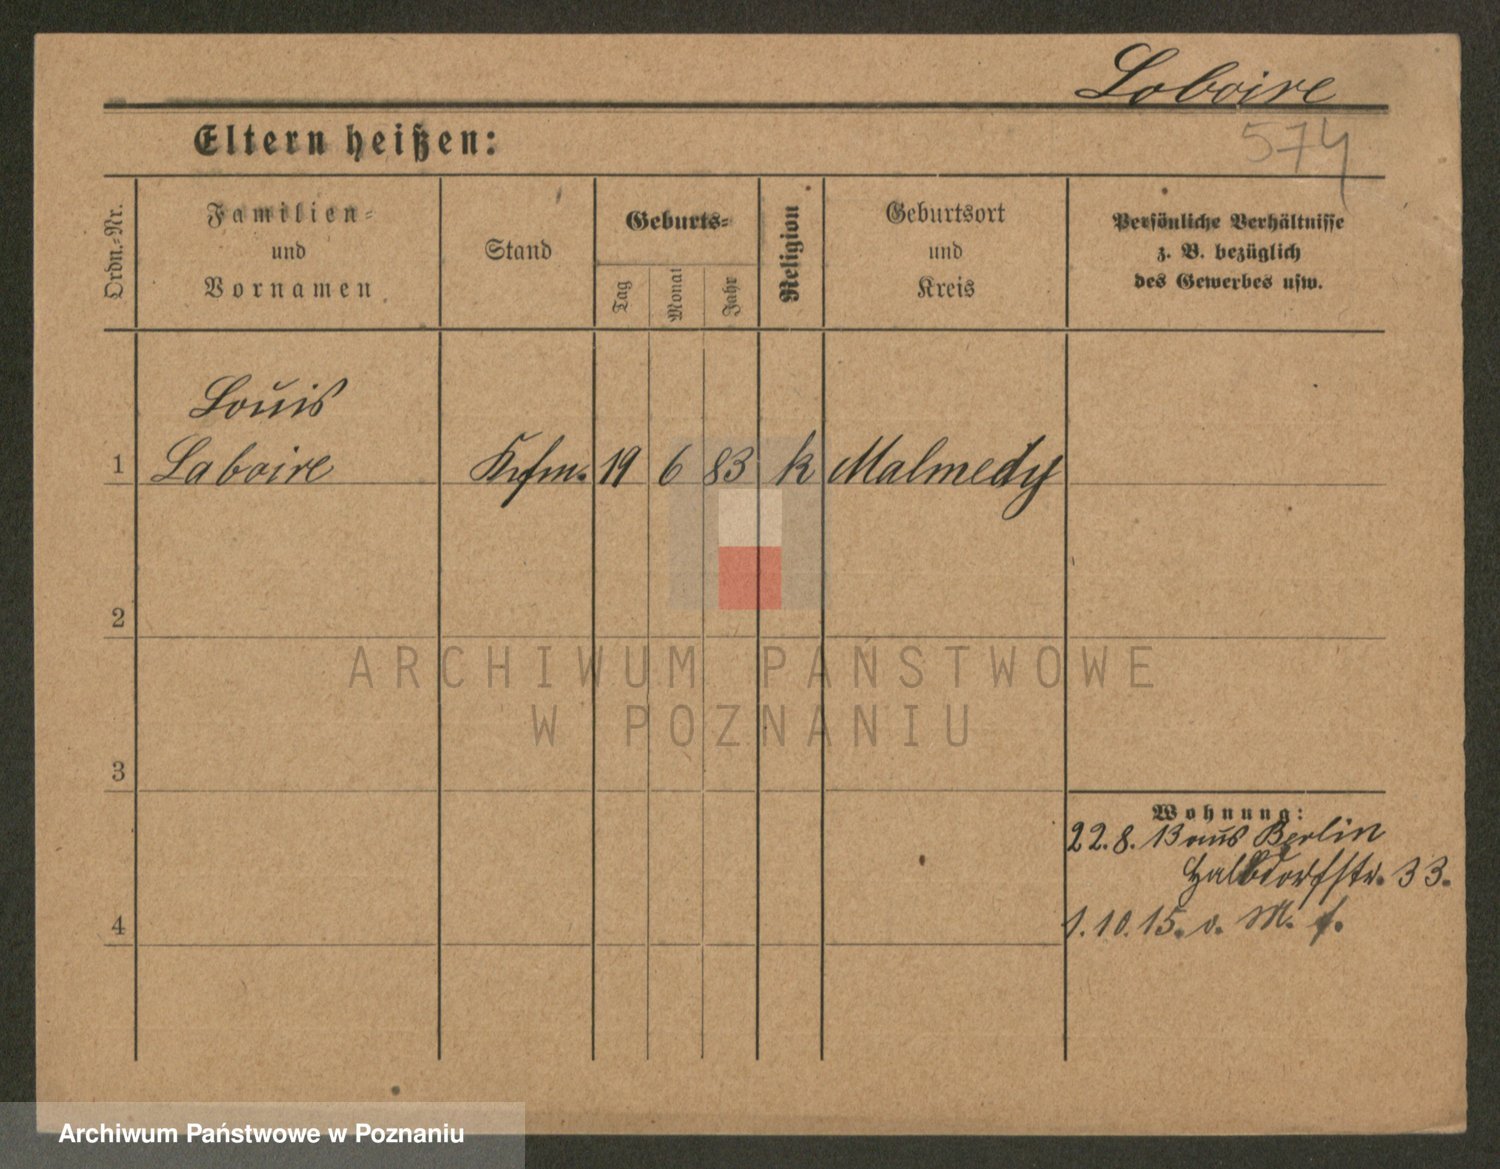 Loboire
574
Eltern heißen:
Ordn.-Nr.
Familien-
und
Vornamen
Stand
Geburts-
Tag
Monat
Jahr
Religion
Geburtsort
und
Kreis
Persönliche Verhältnisse
z. B. bezüglich
des Gewerbes usw.
Louis
1 Laboire Kfm. 19 6 83 k Malmedy
2
ARCHIWUM PAŃSTWOWE
W POZNANIU
3
Wohnung:
22.8.13 aus Berlin
Halbdorfstr. 33.
4
1.10.15. o. M. f.
Archiwum Państwowe w Poznaniu